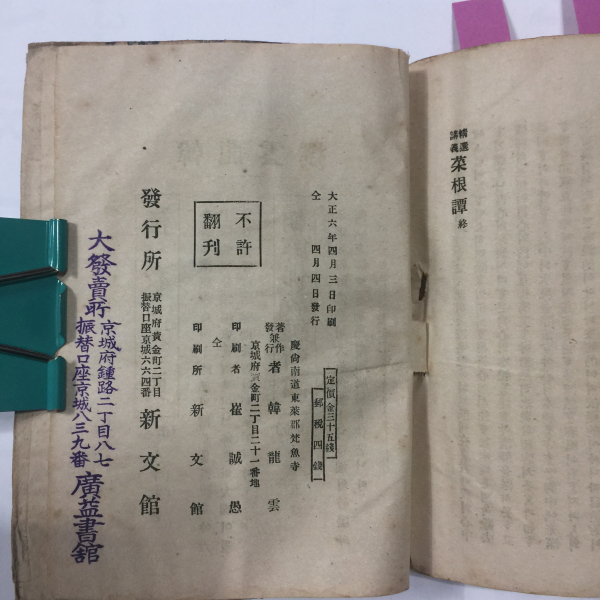 精選講義 菜根譚 終
大正六年四月三日印刷
仝 四月四日發行
定價金三十五錢
郵税四錢
不許
翻刊
慶尙南道東萊郡梵魚寺
著作兼發行者 韓龍雲
京城府黃金町二丁目二十一番地
印刷者 崔誠愚
仝
印刷所 新文館
京城府黃金町二丁目
振替口座京城六六四番
發行所 新文館
京城府鍾路二丁目八七
振替口座京城八三九番
大發賣所 廣益書舘